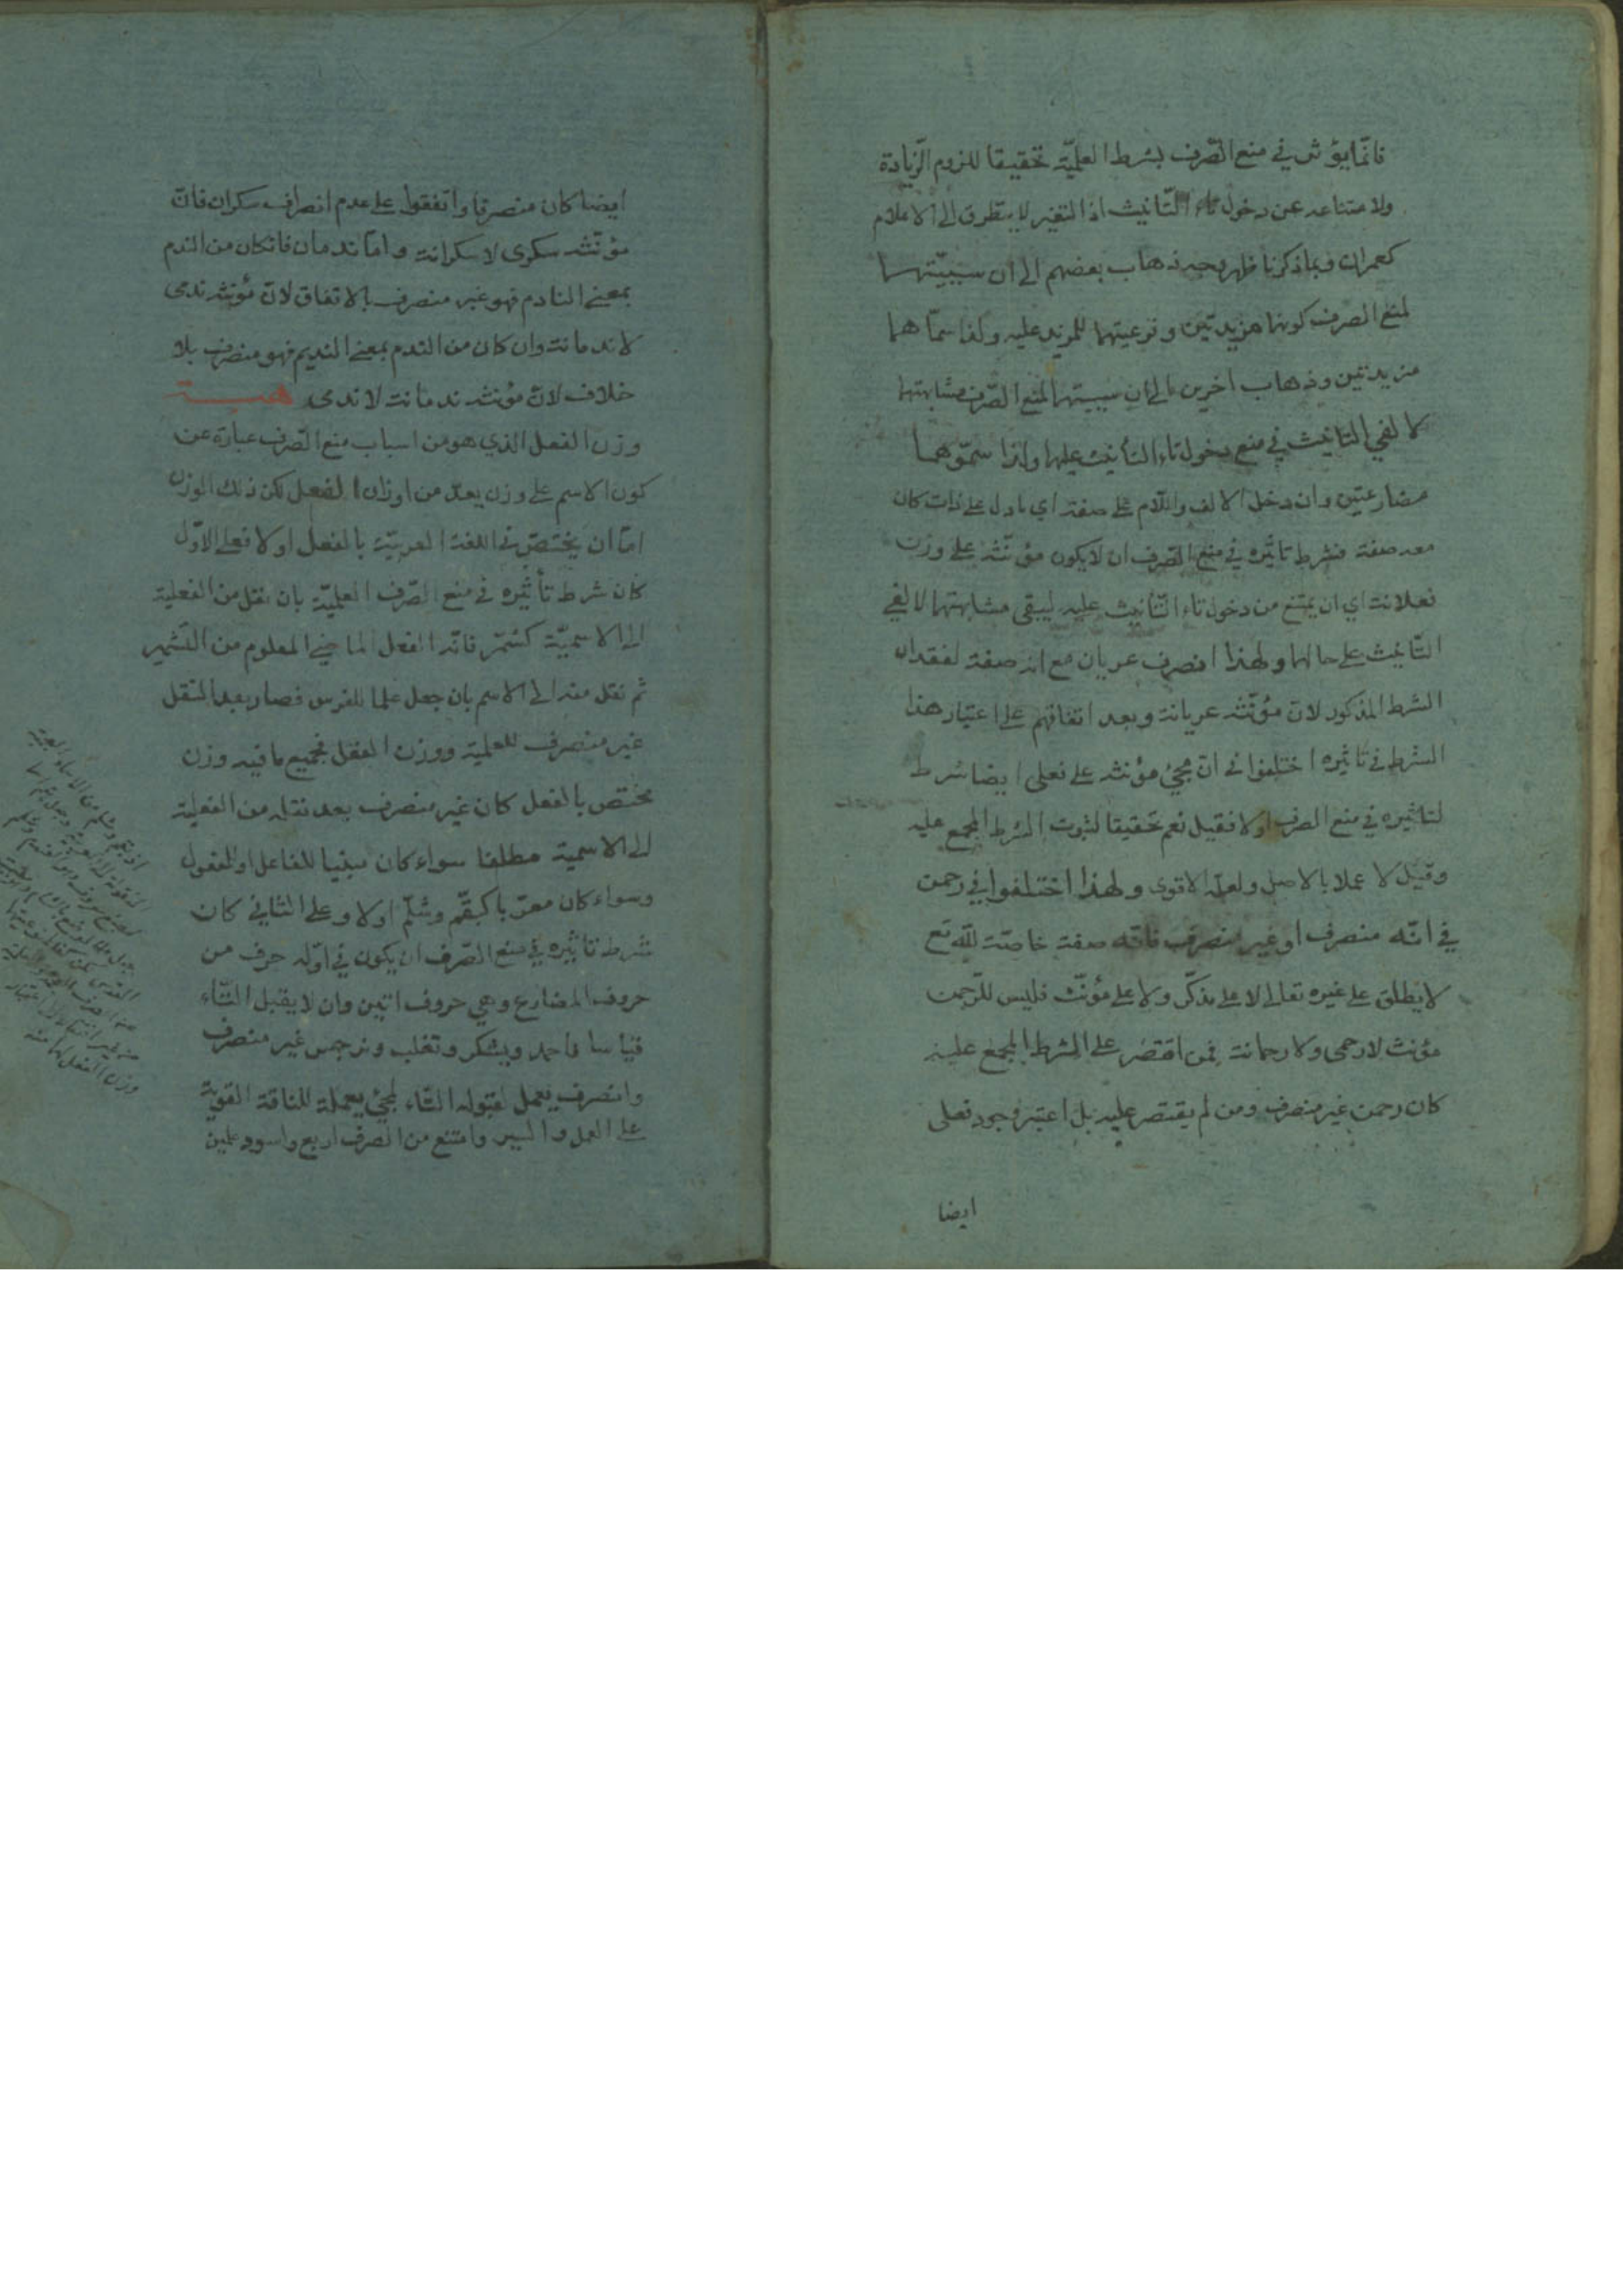 فانّما يؤثر في منع الصّرف بشرط العلميّة تحقيقا للزوم الزّيادة
ولامتناعه عن دخول تاء التّانيث اذ التغير لا يتطرق الى الاعلام
كعمران وبما ذكرنا ظهر وجه ذهاب بعضهم الى ان سببيّتهما
لمنع الصرف كونهما مزيدتين وفرعيتهما للمزيد عليه ولذا سمّاهما
مزيدتين وذهاب اخرين الى ان سببيتهما لمنع الصّرف مشابهتهما
لالفي التانيث في منع دخول تاء التأنيث عليهما ولذا سمّوهما
مضارعتين وان دخل الالف واللام على صفة اي ما دل على ذات كان
معه صفة فشرط تاثيره في منع الصّرف ان لا يكون مؤنّثه على وزن
فعلانة اي ان يمتنع من دخول تاء التّانيث عليه ليبقى مشابهتهما لالفي
التّانيث على حالها ولهذا انصرف عريان مع انه صفة لفقدان
الشرط المذكور لانّ مؤنّثه عريانة وبعد اتفاقهم على اعتبار هذا
الشرط في تاثيره اختلفوا في انّ مجئ مؤنثه على فعلى ايضا شرط
لتاثيره في منع الصرف اولا فقيل نعم تحقيقا لثبوت الشرط المجمع عليه
وقيل لا عملا بالاصل ولعلّه الاقوى ولهذا اختلفوا في رحمن
في انّه منصرف او غير منصرف فانّه صفة خاصّة للّه تع
لا يطلق على غيره تعالى لا على مذكّر ولا على مؤنّث فليس للرّحمن
مؤنث لا رحمى ولا رحمانة فمن اقتصر على الشرط المجمع عليه
كان رحمن غير منصرف ومن لم يقتصر عليه بل اعتبر وجود فعلى
ايضا
ايضا كان منصرفا واتفقوا على عدم انصراف سكران فانّ
مؤنّثه سكرى لا سكرانة وامّا ندمان فان كان من الندم
بمعنى النادم فهو غير منصرف بالاتفاق لانّ مؤنثه ندمى
لا ندمانة وان كان من الندم بمعنى النديم فهو منصرف بلا
خلاف لانّ مؤنثه ندمانة لا ندمى
وزن الفعل الذي هو من اسباب منع الصّرف عبارة عن
كون الاسم على وزن يعدّ من اوزان الفعل لكن ذلك الوزن
امّا ان يختصّ في اللغة العربيّة بالفعل اولا فعلى الاوّل
كان شرط تأثيره في منع الصّرف العلميّة بان نقل من الفعلية
الى الاسميّة كشمّر فانّه الفعل الماضي المعلوم من التّشمير
ثم نقل منه الى الاسم بان جعل علما للفرس فصار بعد النقل
غير منصرف للعلمية ووزن الفعل فجميع ما فيه وزن
مختص بالفعل كان غير منصرف بعد نقله من الفعلية
الى الاسمية مطلقا سواء كان مبنيا للفاعل او للمفعول
وسواء كان معرّبا كبقّم وشلّم اولا وعلى الثاني كان
شرط تاثيره في منع الصّرف ان يكون في اوّله حرف من
حروف المضارع وهي حروف اتين وان لا يقبل التّاء
قياسا فاحمد ويشكر وتغلب ونرجس غير منصرف
وانصرف يعمل لقبوله التّاء لمجئ يعملة للناقة القويّة
على العمل والسير وامتنع من الصرف اربع واسود علمين